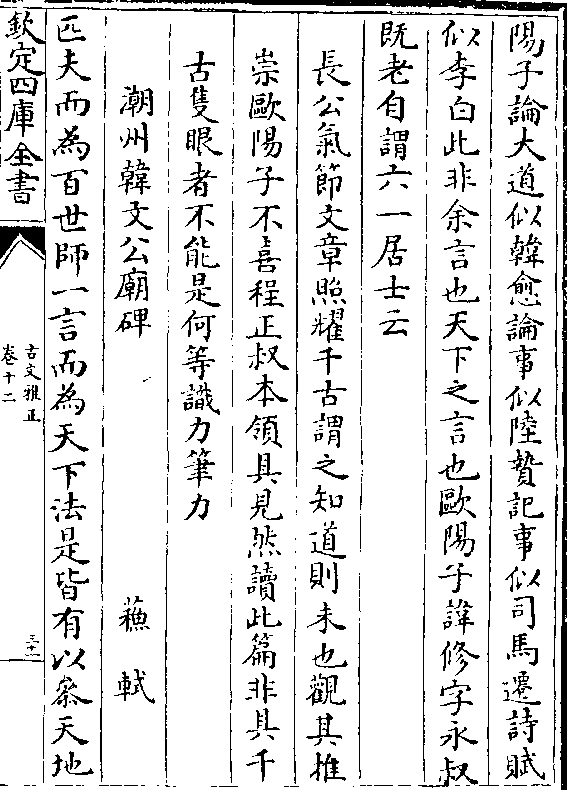 陽子論大道似韓愈論事似陸贄記事似司馬遷詩賦
似李白此非余言也天下之言也歐陽子諱修字永叔
既老自謂六一居士云
長公氣節文章照耀千古謂之知道則未也觀其推
崇歐陽子不喜程正叔本領具見然讀此篇非具千
古隻眼者不能是何等識力筆力
潮州韓文公廟碑 蘓軾
匹夫而為百世師一言而為天下法是皆有以叅天地
欽定四庫全書
古文雅正
卷十二
三十一